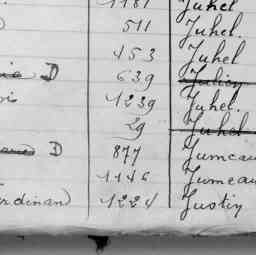 1181 Juhel
511 Juhel.
453 Juhel
D 639
1239 Juhel.
29 Juhel
D 877 Jumeau
1146 Jumeau
erdinand 1224 Justin